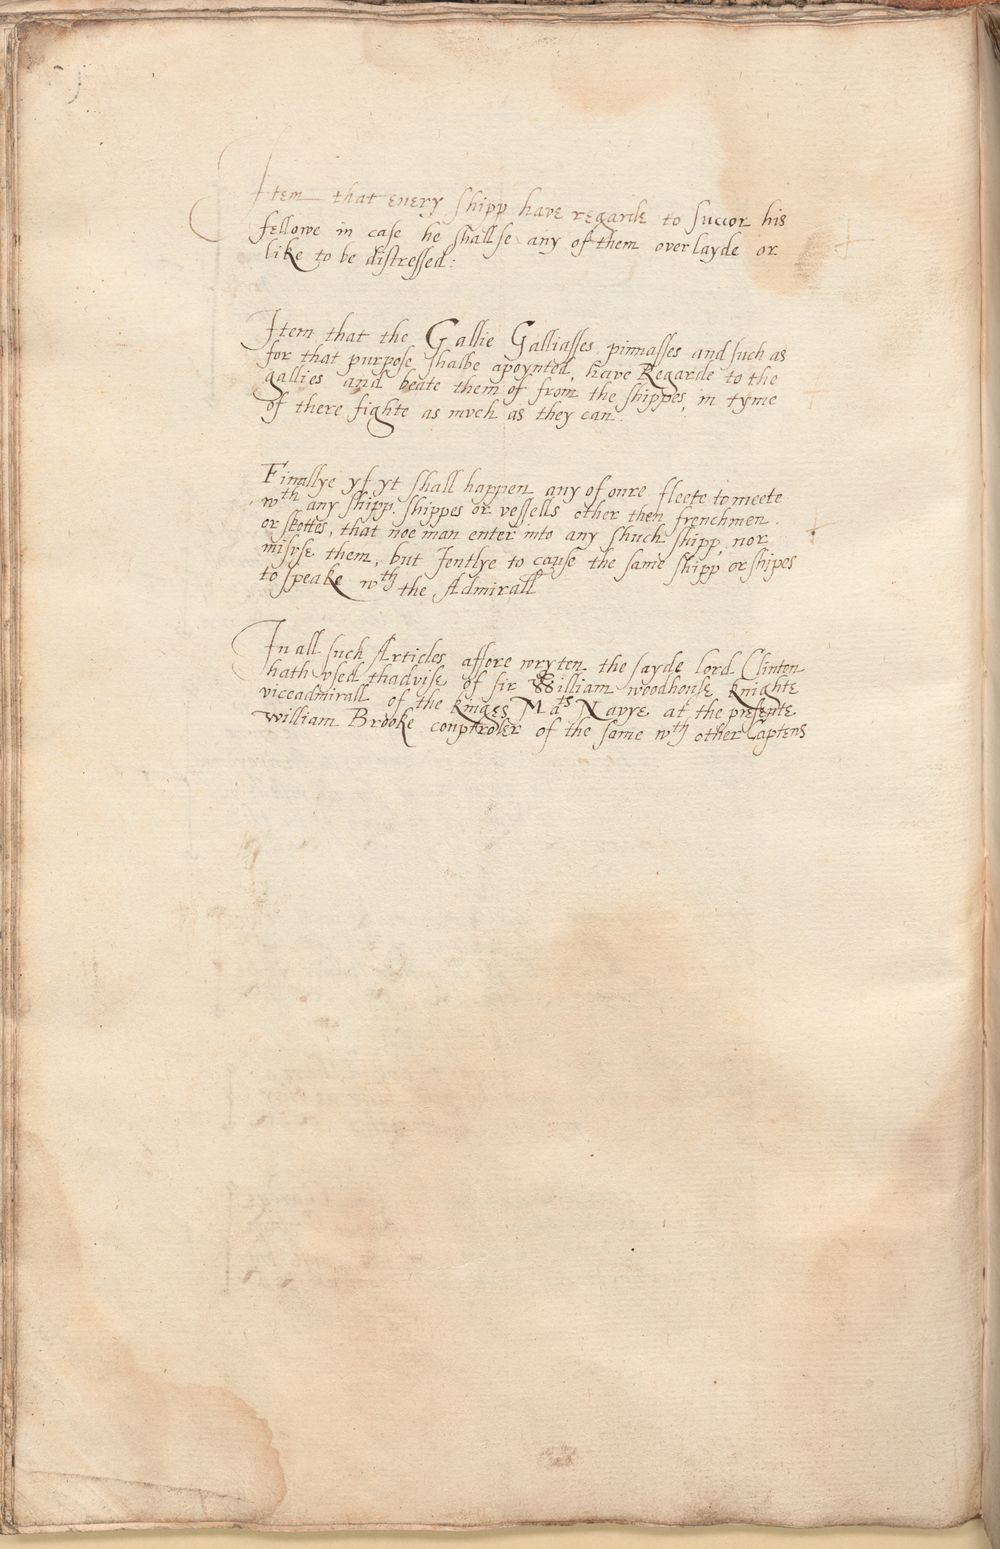 Item that every shipp have regarde to succor his
fellowe in case he shall se any of them overlayde or
like to be distressed:
Item that the Gallie Galliasses pinnasses and such as
for that purpose shalbe apoynted, have Regarde to the
gallies and beate them of from the shippes, in tyme
of there fighte as mvch as they can.
Finallye yf yt shall happen any of oure fleete to meete
wth any shipp, shippes or vessells other then frenchmen
or skottes, that noe man enter into any shuch shipp, nor
misvse them, but Jentlye to cause the same shipp or shipes
to speake wth the Admirall
In all such Articles affore wryten the sayde lord Clinton
hath vsed thadvise of sir William woodhouse knighte
viceadmirall of the kinges Mats Navye at the presente
William Brooke conptroler of the same wth other Captens